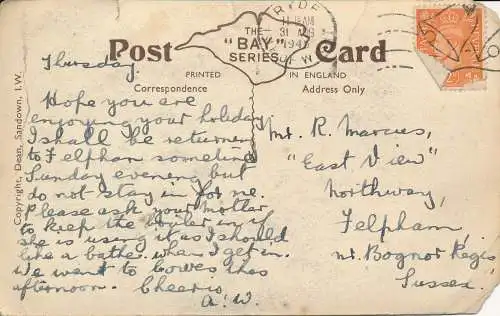 RYDE
11 15 AM
31 AUG
194
I. OF W.
Post Card
THE
"BAY"
SERIES
PRINTED IN ENGLAND
Correspondence
Address Only
Copyright, Dean, Sandown, I.W.
Thursday.
Hope you are
enjoying your holiday
I shall be returning
to Felpham sometime
Sunday evening but
do not stay in for me.
Please ask your mother
to keep the boiler in if
she is using it as I should
like a bathe when I get in.
We went to Cowes this
afternoon. Cheerio
A.W.
Mr. R. Marcus,
"East View"
Northway,
Felpham,
Nr. Bognor Regis
Sussex.